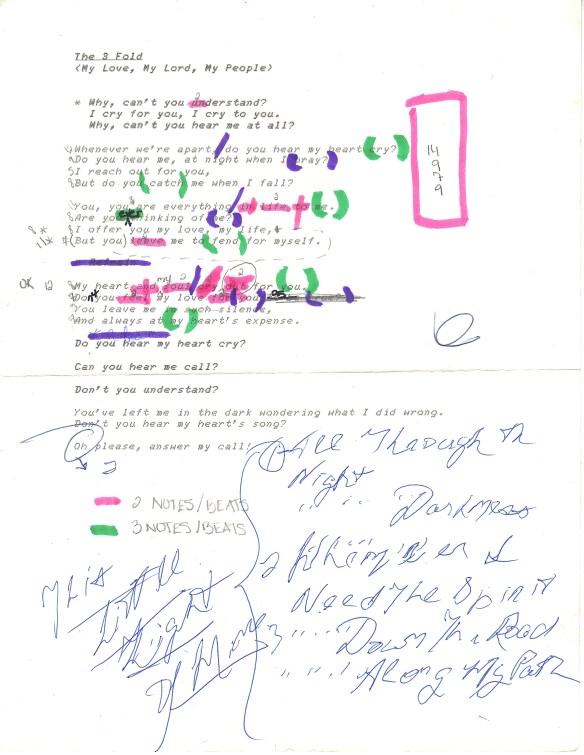 The 3 Fold
(My Love, My Lord, My People)
2
* Why, can't you understand?
I cry for you, I cry to you.
Why, can't you hear me at all?
Whenever we're apart, do you hear my heart cry?
Do you hear me, at night when I pray?
I reach out for you,
But do you catch me when I fall?
14
9
7
9
You, you are everything in life to me.
Are you thinking of me?
I offer you my love, my life,
(But you) leave me to fend for myself.)
Refrain
OK 12
My heart and soul cry out for you.
Do you feel my love for you
You leave me in such silence,
And always at my heart's expense.
Do you hear my heart cry?
Can you hear me call?
Don't you understand?
You've left me in the dark wondering what I did wrong.
Don't you hear my heart's song?
Oh please, answer my call!
2
2 NOTES/BEATS
3 NOTES/BEATS
This
Little
Light
Of Mine
1 All Through Th
Night
" " " Darkness
2 When I
Need The Spirit
3 " " " Down The Road
" " " Along My Path